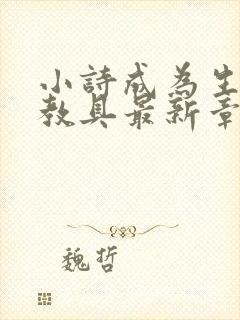 小詩成為生
教具最新章
魏哲